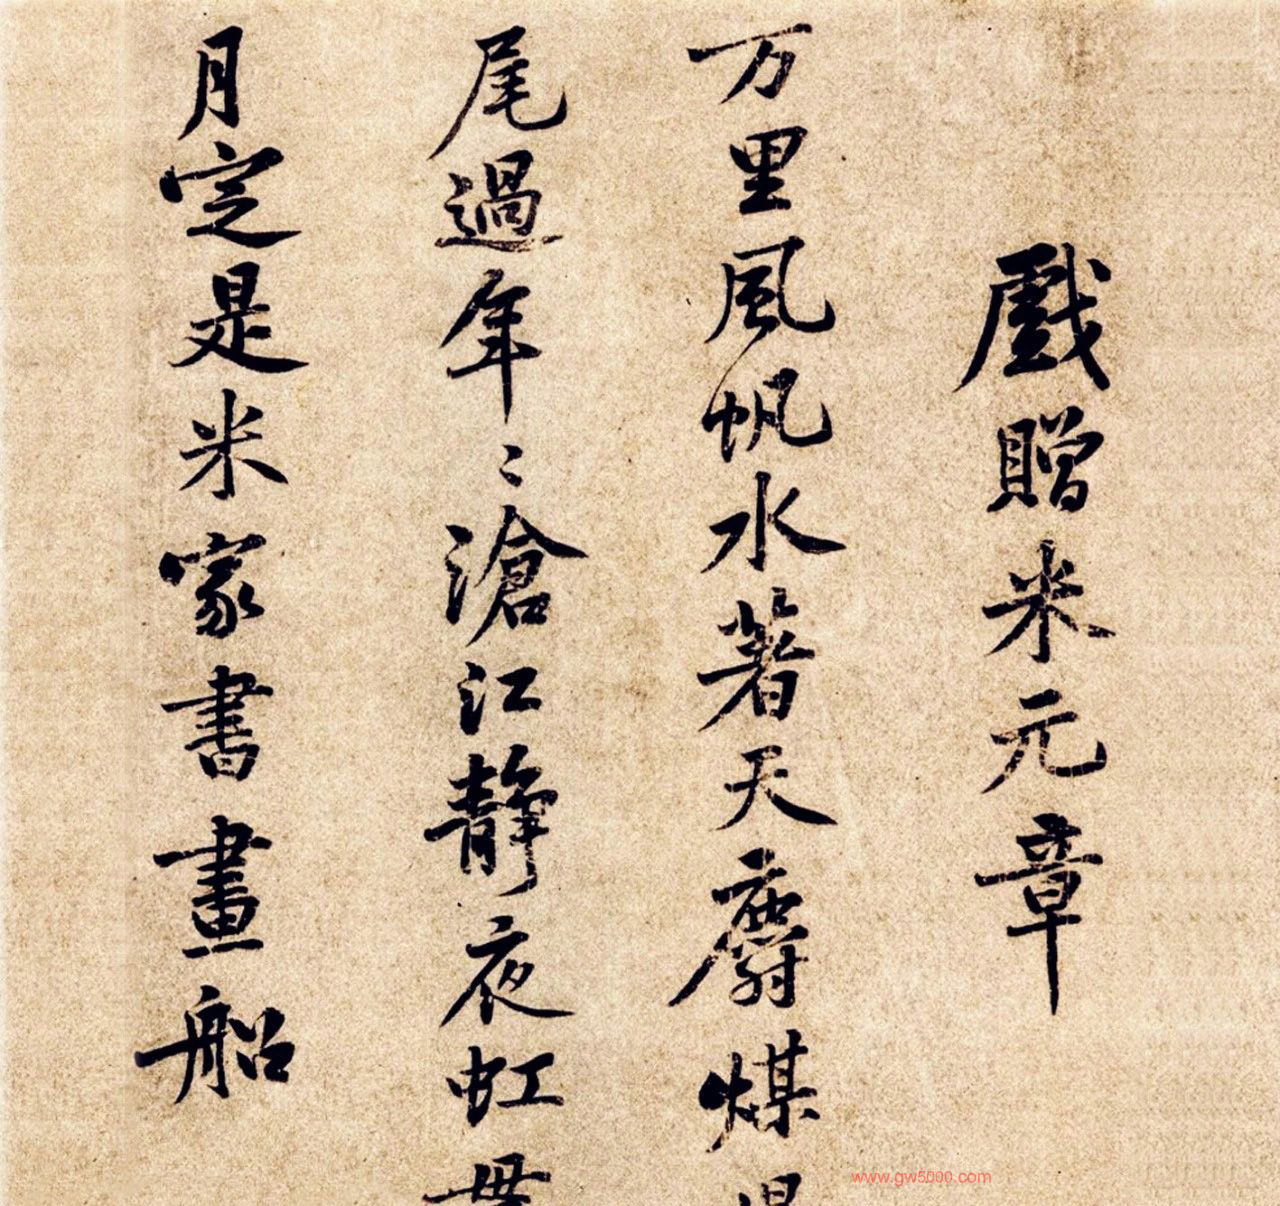 戲贈米元章
万里風帆水著天麝煤
尾過年〻滄江静夜虹
月定是米家書畫船
www.gw5000.com